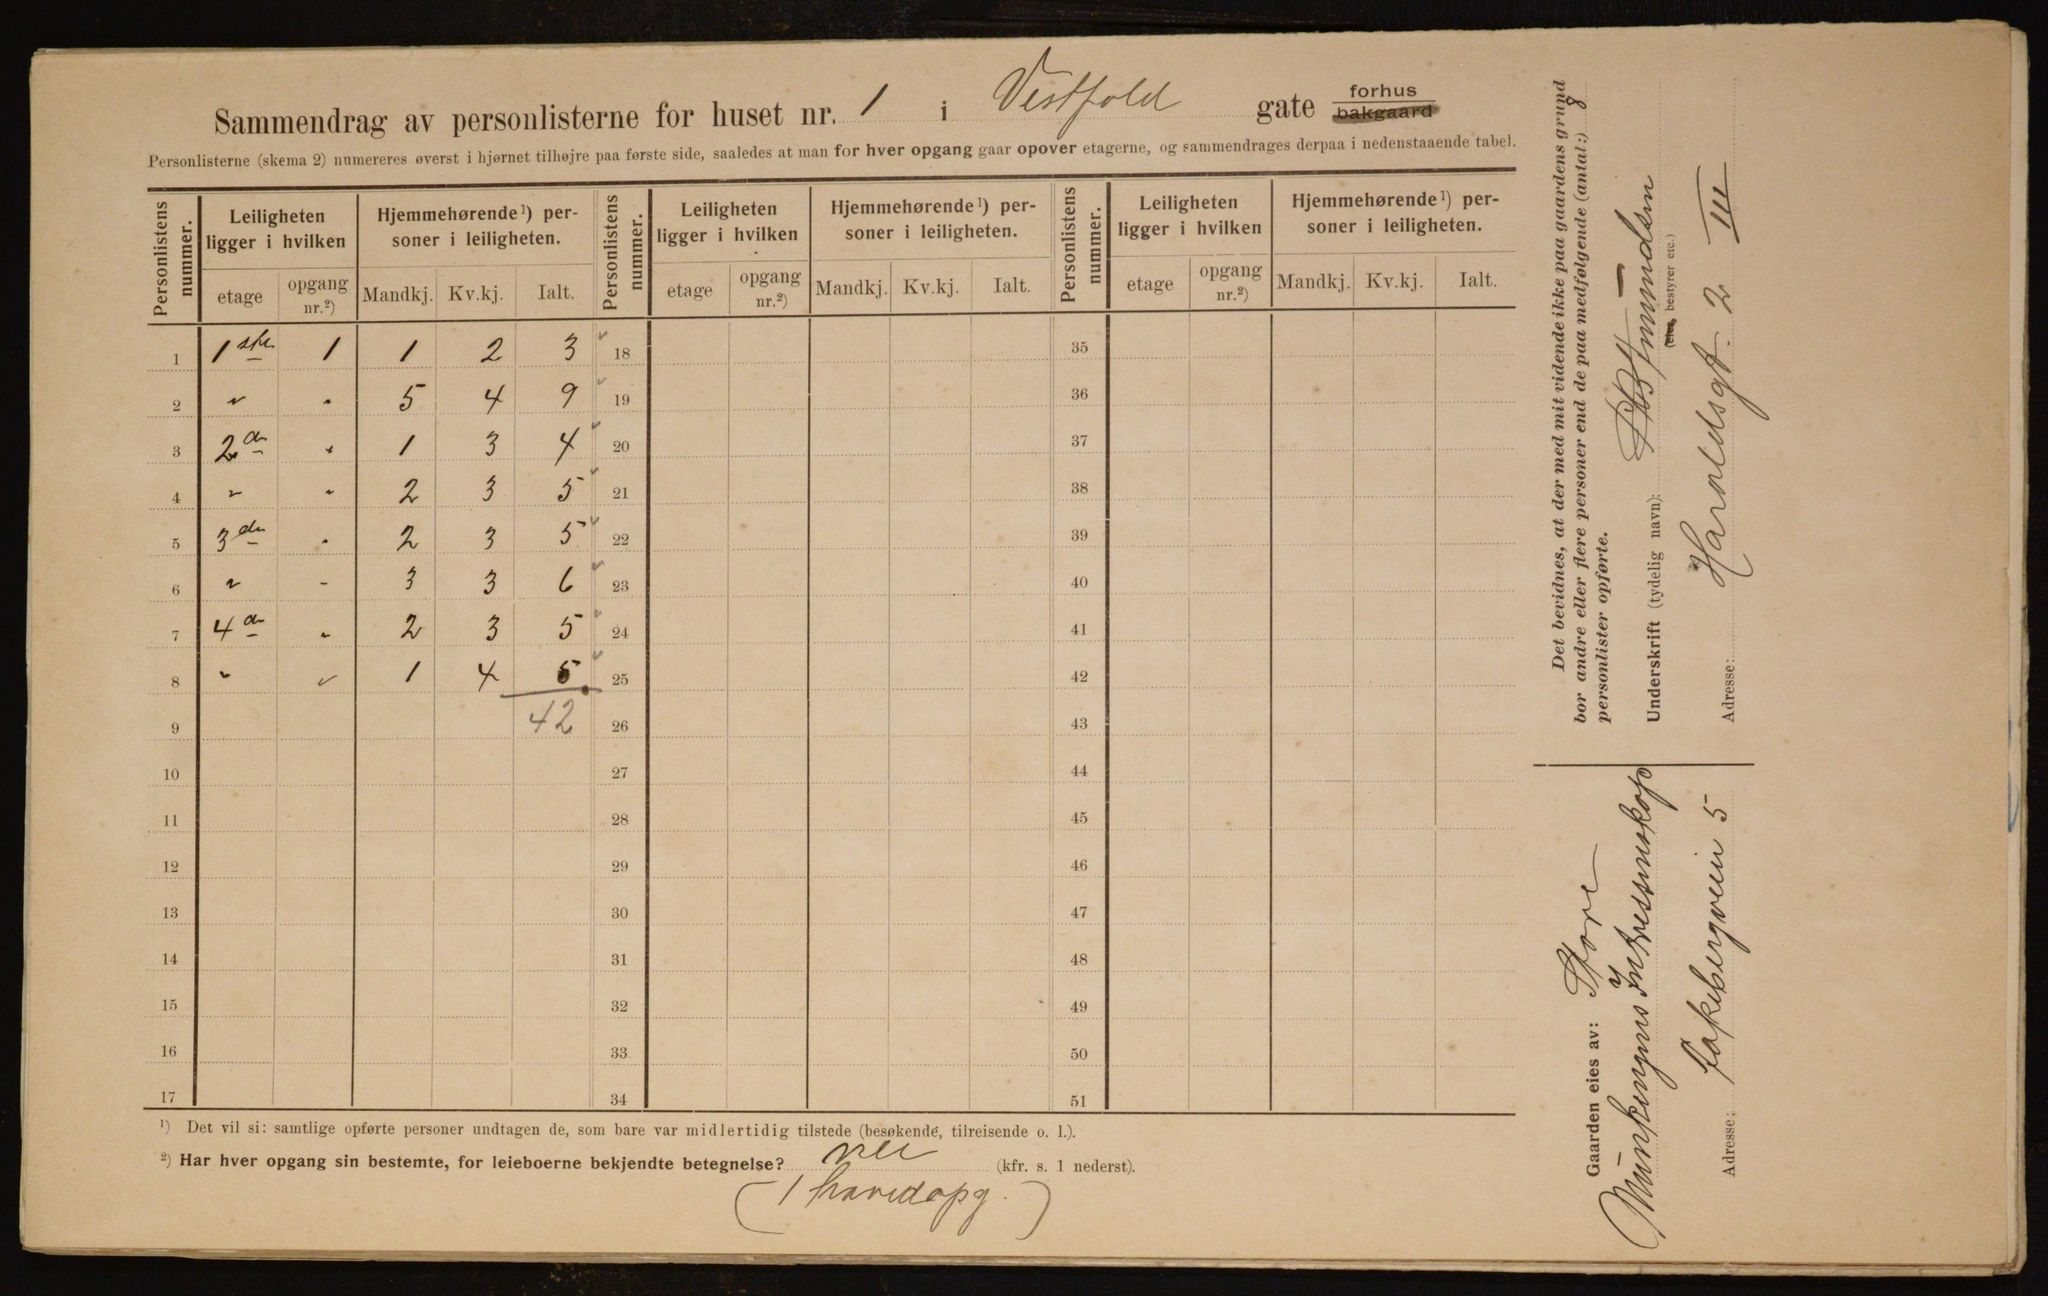 Sammendrag av personlisterne for huset nr. 1 i Vestfold gate forhus bakgaard
Personlisterne (skema 2) numereres øverst i hjørnet tilhøjre paa første side, saaledes at man for hver opgang gaar opover etagerne, og sammendrages derpaa i nedenstaaende tabel.
Personlistens nummer. Leiligheten ligger i hvilken Hjemmehørende¹) personer i leiligheten. Personlistens nummer. Leiligheten ligger i hvilken Hjemmehørende¹) personer i leiligheten. Personlistens nummer. Leiligheten ligger i hvilken Hjemmehørende¹) personer i leiligheten.
etage opgang nr.²) Mandkj. Kv.kj. Ialt. etage opgang nr.²) Mandkj. Kv.kj. Ialt. etage opgang nr.²) Mandkj. Kv.kj. Ialt.
1 1ste 1 1 2 3 18 35
2 " " 5 4 9 19 36
3 2den " 1 3 4 20 37
4 " " 2 3 5 21 38
5 3die " 2 3 5 22 39
6 " " 3 3 6 23 40
7 4de " 2 3 5 24 41
8 " " 1 4 5 25 42
9 42 26 43
10 27 44
11 28 45
12 29 46
13 30 47
14 31 48
15 32 49
16 33 50
17 34 51
¹) Det vil si: samtlige opførte personer undtagen de, som bare var midlertidig tilstede (besøkende, tilreisende o. l.).
²) Har hver opgang sin bestemte, for leieboerne bekjendte betegnelse? nei (kfr. s. 1 nederst).
(1 hovedopg.)
Det bevidnes, at der med mit vidende ikke paa gaardens grund
bor andre eller flere personer end de paa medfølgende (antal:) 8
personlister opførte.
Underskrift (tydelig navn):
(eier, bestyrer etc.)
Adresse: Haraldsgt. 2 III
Gaarden eies av: Store
Munkengens Interessentskap
Adresse: Fakkelbergveien 5